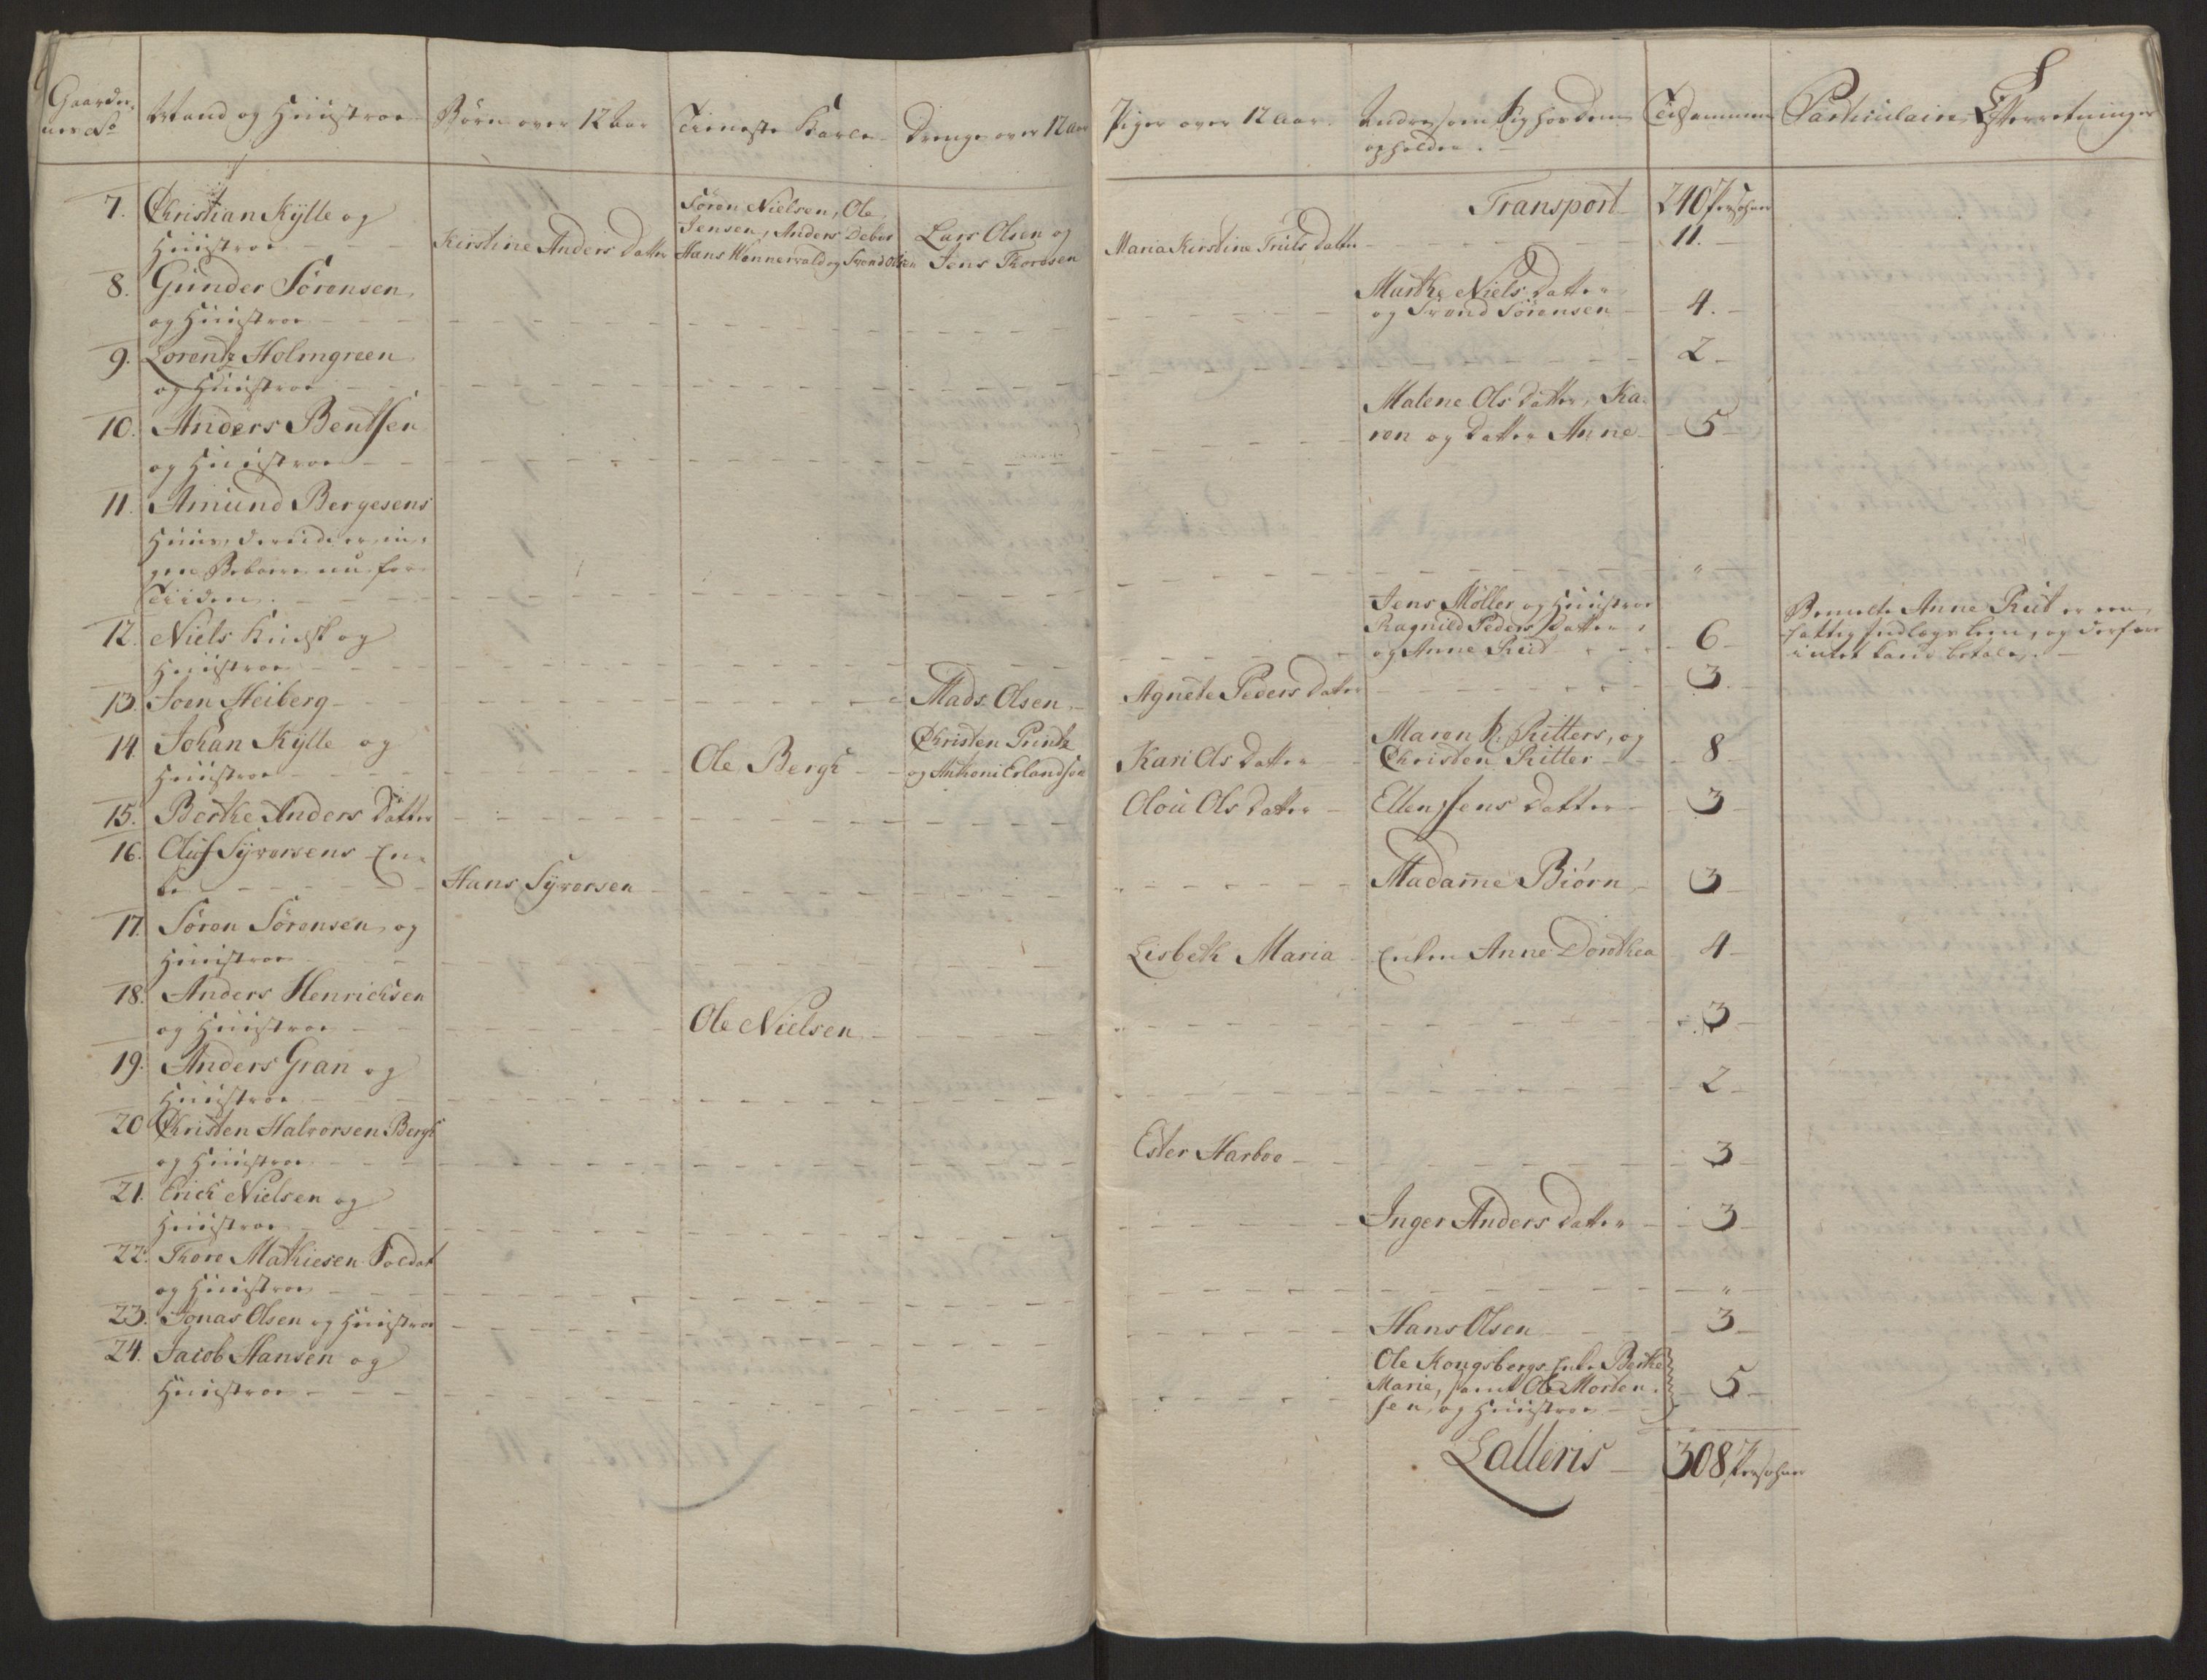 Gaarder- Mand og Hüüstroe Börn over 12 Aar Tieneste Karle Drenge over 12 Aar Piger over 12 Aar. Andre som sig hos dem Tilsammen Particulaire Efterretninger
nes No opholder.
Transport 240 Persohner
7. Christian Kÿlle og
Hüüstroe Kirstine Anders Datter
Sören Nielsen, Ole
Jensen, Anders Debes
Hans Wennerwald og Svend Olsen
Lars Olsen og
Jens Thoresen
Maria Kirstine Trüls Datter 11.
8. Gunder Sörensen
og Hüüstroe
Marthe Niels Datter
og Trond Sörensen 4.
9. Lorentz Holmgreen
og Hüüstroe 2
10. Anders Bentsen
og Hüüstroe
Malene Ols Datter, Ka-
ren og Datter Anne 5
11. Amund Bergesens
Hüüs, derudi er in-
gen Beboere nu for
Tiiden. "
12. Niels Kudsk og
Hüüstroe
Jens Möller og Hüüstroe
Ragnild Peders Datter,
og Anne Rüd 6
Bemelte Anne Rüd er een
fattig Indlægs Lem, og derfore
intet kand betale.
13. Joen Heiberg Mads Olsen Agnete Peders Datter 3.
14. Johan Kÿlle og
Hüüstroe Ole Bergh
Christen Printz
og Anthoni Erlandsen
Kari Ols Datter
Maren Ritters, og
Christen Ritter 8
15. Berthe Anders Datter Oloü Ols Datter Ellen Jens Datter 3
16. Oluf Sÿversens En-
ke Hans Sÿversen Madame Biörn 3
17. Sören Sörensen, og
Hüüstroe Lisbeth Maria Enken Anne Dorothea 4
18. Anders Henrichsen
og Hüüstroe Ole Nielsen 3
19. Anders Gran og
Hüüstroe 2
20 Christen Halvorsen Bergh
og Hüüstroe Ester Harboe 3
21. Erich Nielsen og
Hüüstroe Inger Anders Datter 3
22. Thore Mathiesen Soldat
og Hüüstroe "
23. Jonas Olsen og Hüüstroe Hans Olsen 3
24. Jacob Hansen og
Hüüstroe
Ole Kongsbergs Enke Berthe
Marie, samt Ole Morten-
sen, og Hüüstroe 5
Lateris 308 Persohner